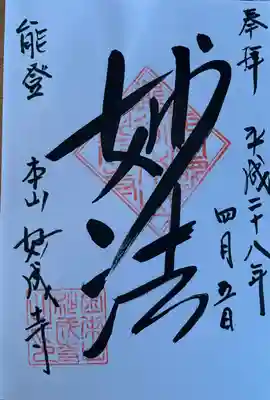 奉拝
平成二十八年
四月五日
妙法
能登
本山
妙成寺